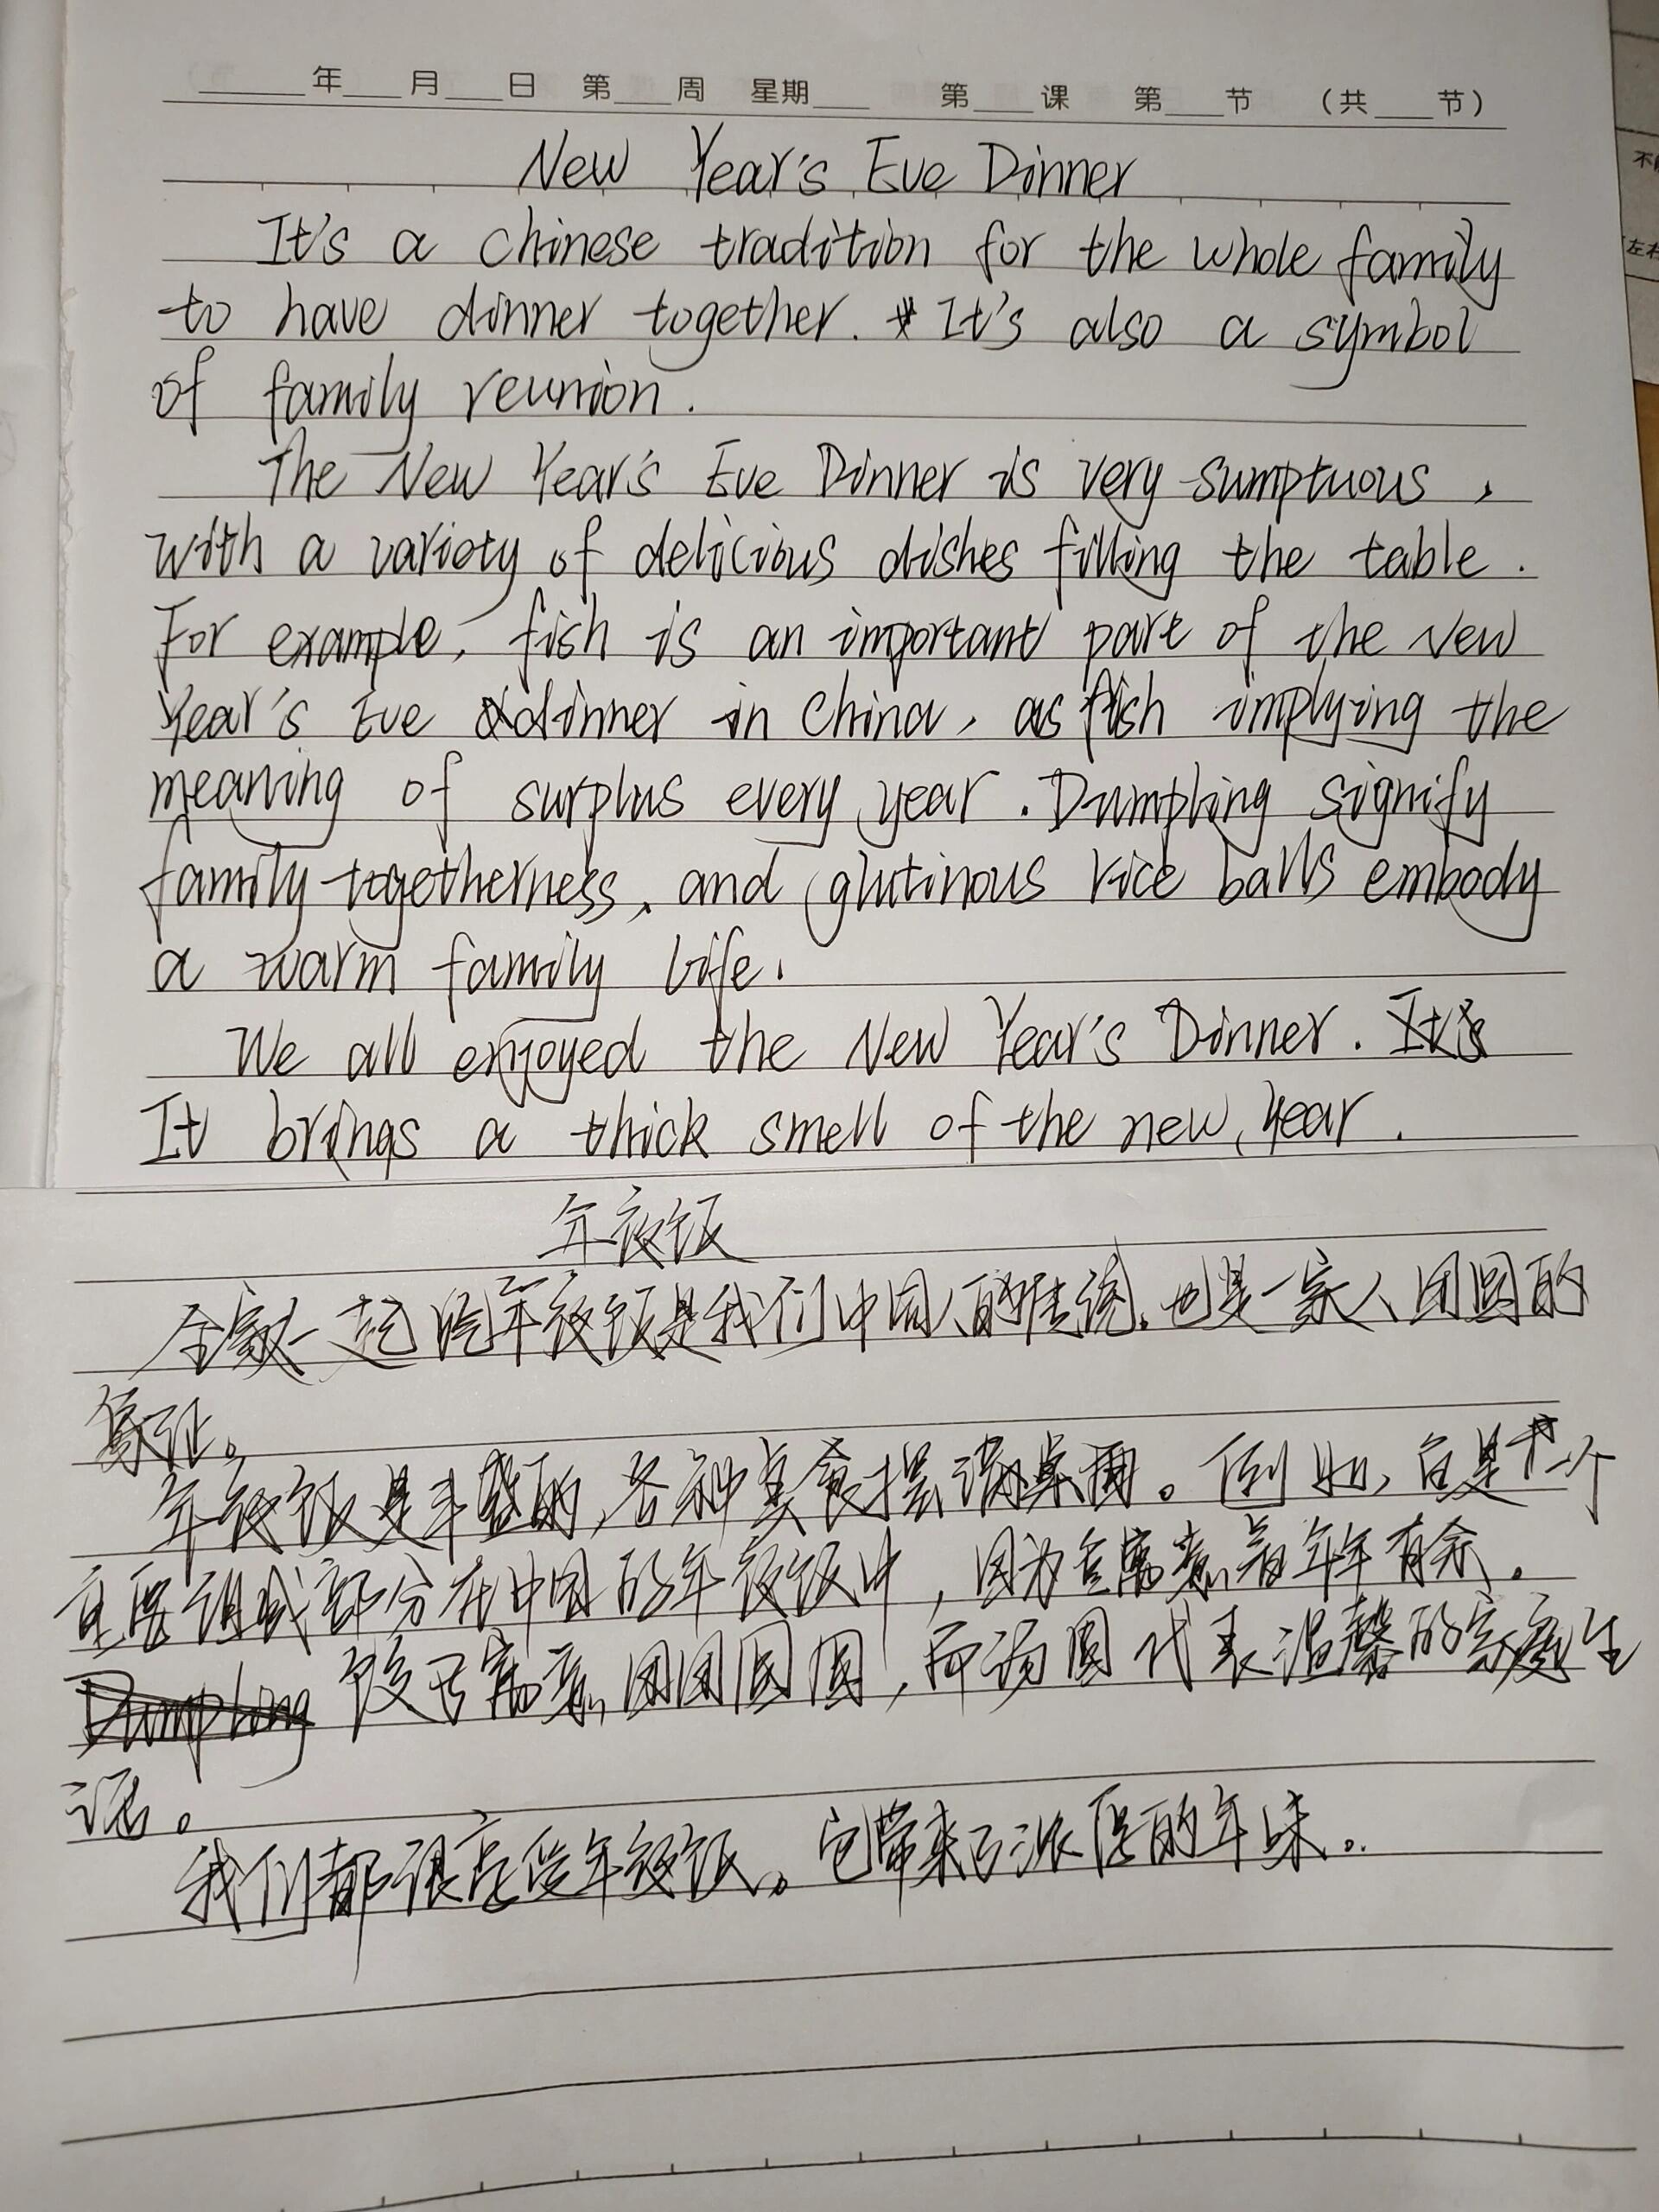 年 月 日 第 周 星期 第 课 第 节 （共 节）
New Year's Eve Dinner
It's a chinese tradition for the whole family
to have dinner together. It's also a symbol
of family reunion.
The New Year's Eve Dinner is very sumptuous,
with a variety of delicious dishes filling the table.
For example, fish is an important part of the New
Year's Eve dinner in China, as fish implying the
meaning of surplus every year. Dumpling signify
family togetherness, and glutinous rice balls embody
a warm family life.
We all enjoyed the New Year's Dinner. It's
It brings a thick smell of the new year.
年夜饭
全家一起吃年夜饭是我们中国人的传统，也是一家人团圆的
象征。
年夜饭是丰盛的，各种美食摆满桌面。例如，鱼是一个
重要组成部分在中国的年夜饭中，因为鱼寓意着年年有余。
Dumpling 饺子寓意团团圆圆，而汤圆代表温馨的家庭生
活。
我们都很享受年夜饭。它带来了浓厚的年味。